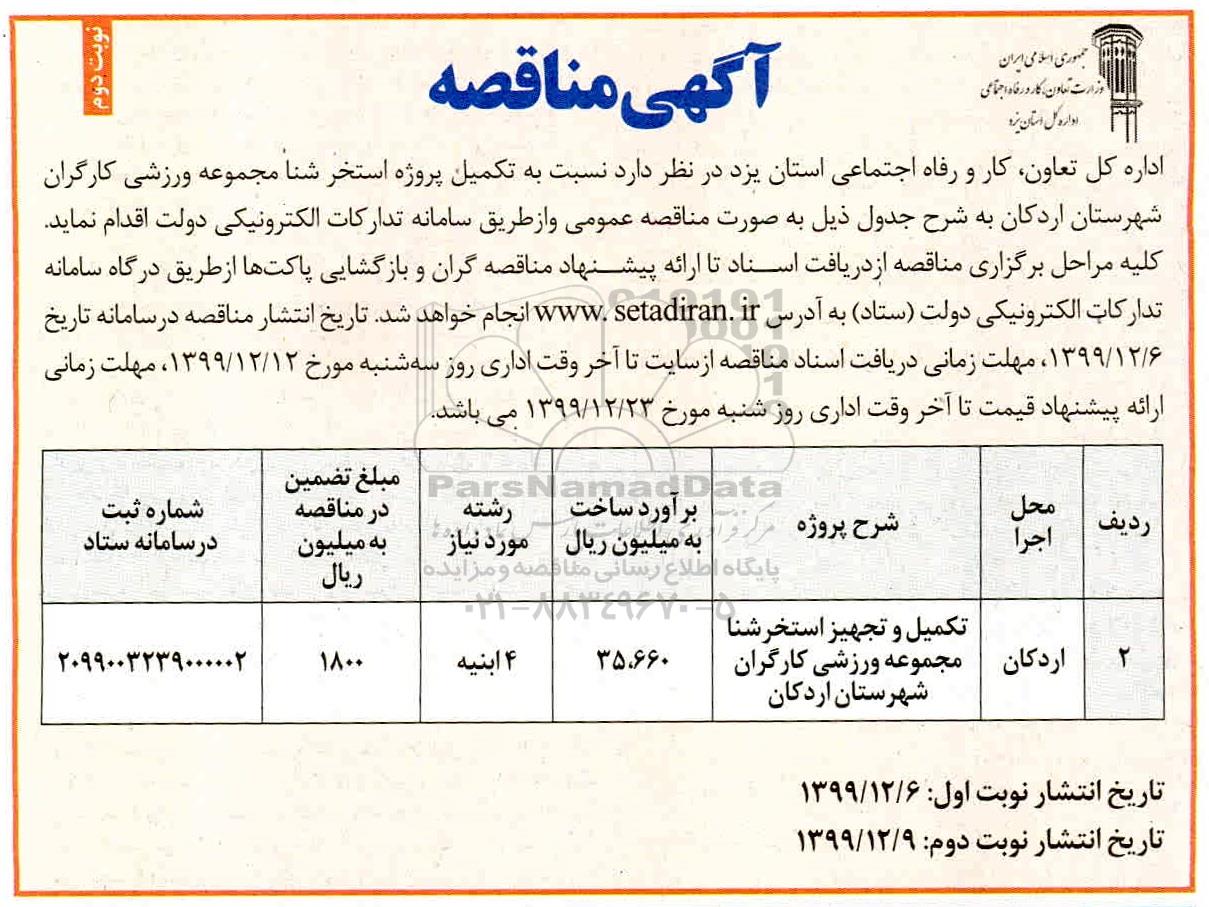 نوبت دوم
جمهوری اسلامی ایران
وزارت تعاون، کار و رفاه اجتماعی
اداره کل استان یزد
آگهی مناقصه
اداره کل تعاون، کار و رفاه اجتماعی استان یزد در نظر دارد نسبت به تکمیل پروژه استخر شنا مجموعه ورزشی کارگران
شهرستان اردکان به شرح جدول ذیل به صورت مناقصه عمومی وازطریق سامانه تدارکات الکترونیکی دولت اقدام نماید.
کلیه مراحل برگزاری مناقصه ازدریافت اسناد تا ارائه پیشنهاد مناقصه گران و بازگشایی پاکت‌ها ازطریق درگاه سامانه
تدارکات الکترونیکی دولت (ستاد) به آدرس www. setadiran. ir انجام خواهد شد. تاریخ انتشار مناقصه درسامانه تاریخ
۱۳۹۹/۱۲/۶، مهلت زمانی دریافت اسناد مناقصه ازسایت تا آخر وقت اداری روز سه‌شنبه مورخ ۱۳۹۹/۱۲/۱۲، مهلت زمانی
ارائه پیشنهاد قیمت تا آخر وقت اداری روز شنبه مورخ ۱۳۹۹/۱۲/۲۳ می باشد.
ردیف
محل
اجرا
شرح پروژه
برآورد ساخت
به میلیون ریال
رشته
مورد نیاز
مبلغ تضمین
در مناقصه
به میلیون
ریال
شماره ثبت
درسامانه ستاد
۲
اردکان
تکمیل و تجهیز استخرشنا
مجموعه ورزشی کارگران
شهرستان اردکان
۳۵،۶۶۰
۴ ابنیه
۱۸۰۰
۲۰۹۹۰۰۳۲۳۹۰۰۰۰۰۲
ParsNamadData
پایگاه اطلاع رسانی مناقصه و مزایده
۰۲۱-۸۸۳۴۹۶۷۰-۵
تاریخ انتشار نوبت اول: ۱۳۹۹/۱۲/۶
تاریخ انتشار نوبت دوم: ۱۳۹۹/۱۲/۹